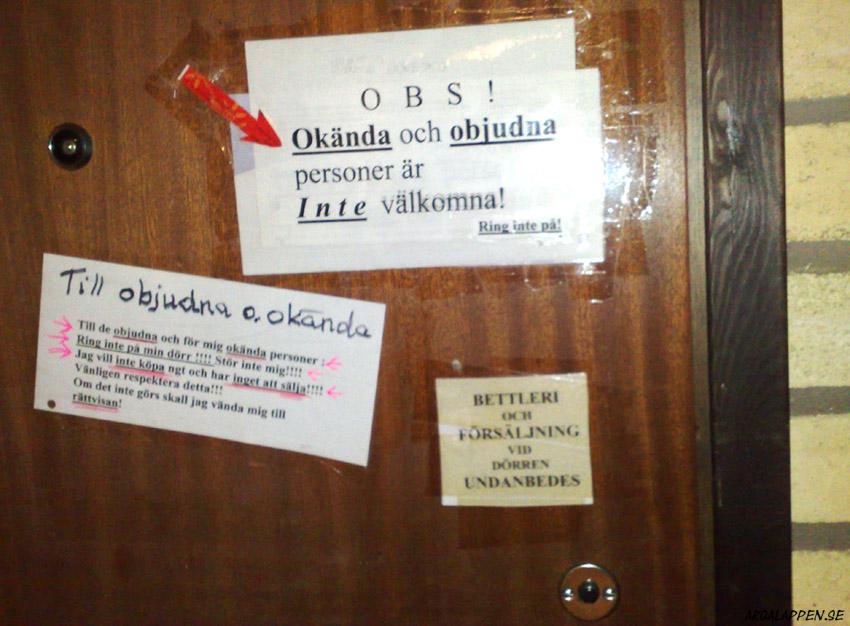 O B S !
Okända och objudna
personer är
Inte välkomna!
Ring inte på!
Till objudna o. okända
Till de objudna och för mig okända personer :
Ring inte på min dörr !!!! Stör inte mig!!!!
Jag vill inte köpa ngt och har inget att sälja!!!!
Vänligen respektera detta!!!
Om det inte görs skall jag vända mig till
rättvisan!
BETTLERI
OCH
FÖRSÄLJNING
VID
DÖRREN
UNDANBEDES
ARGALAPPEN.SE